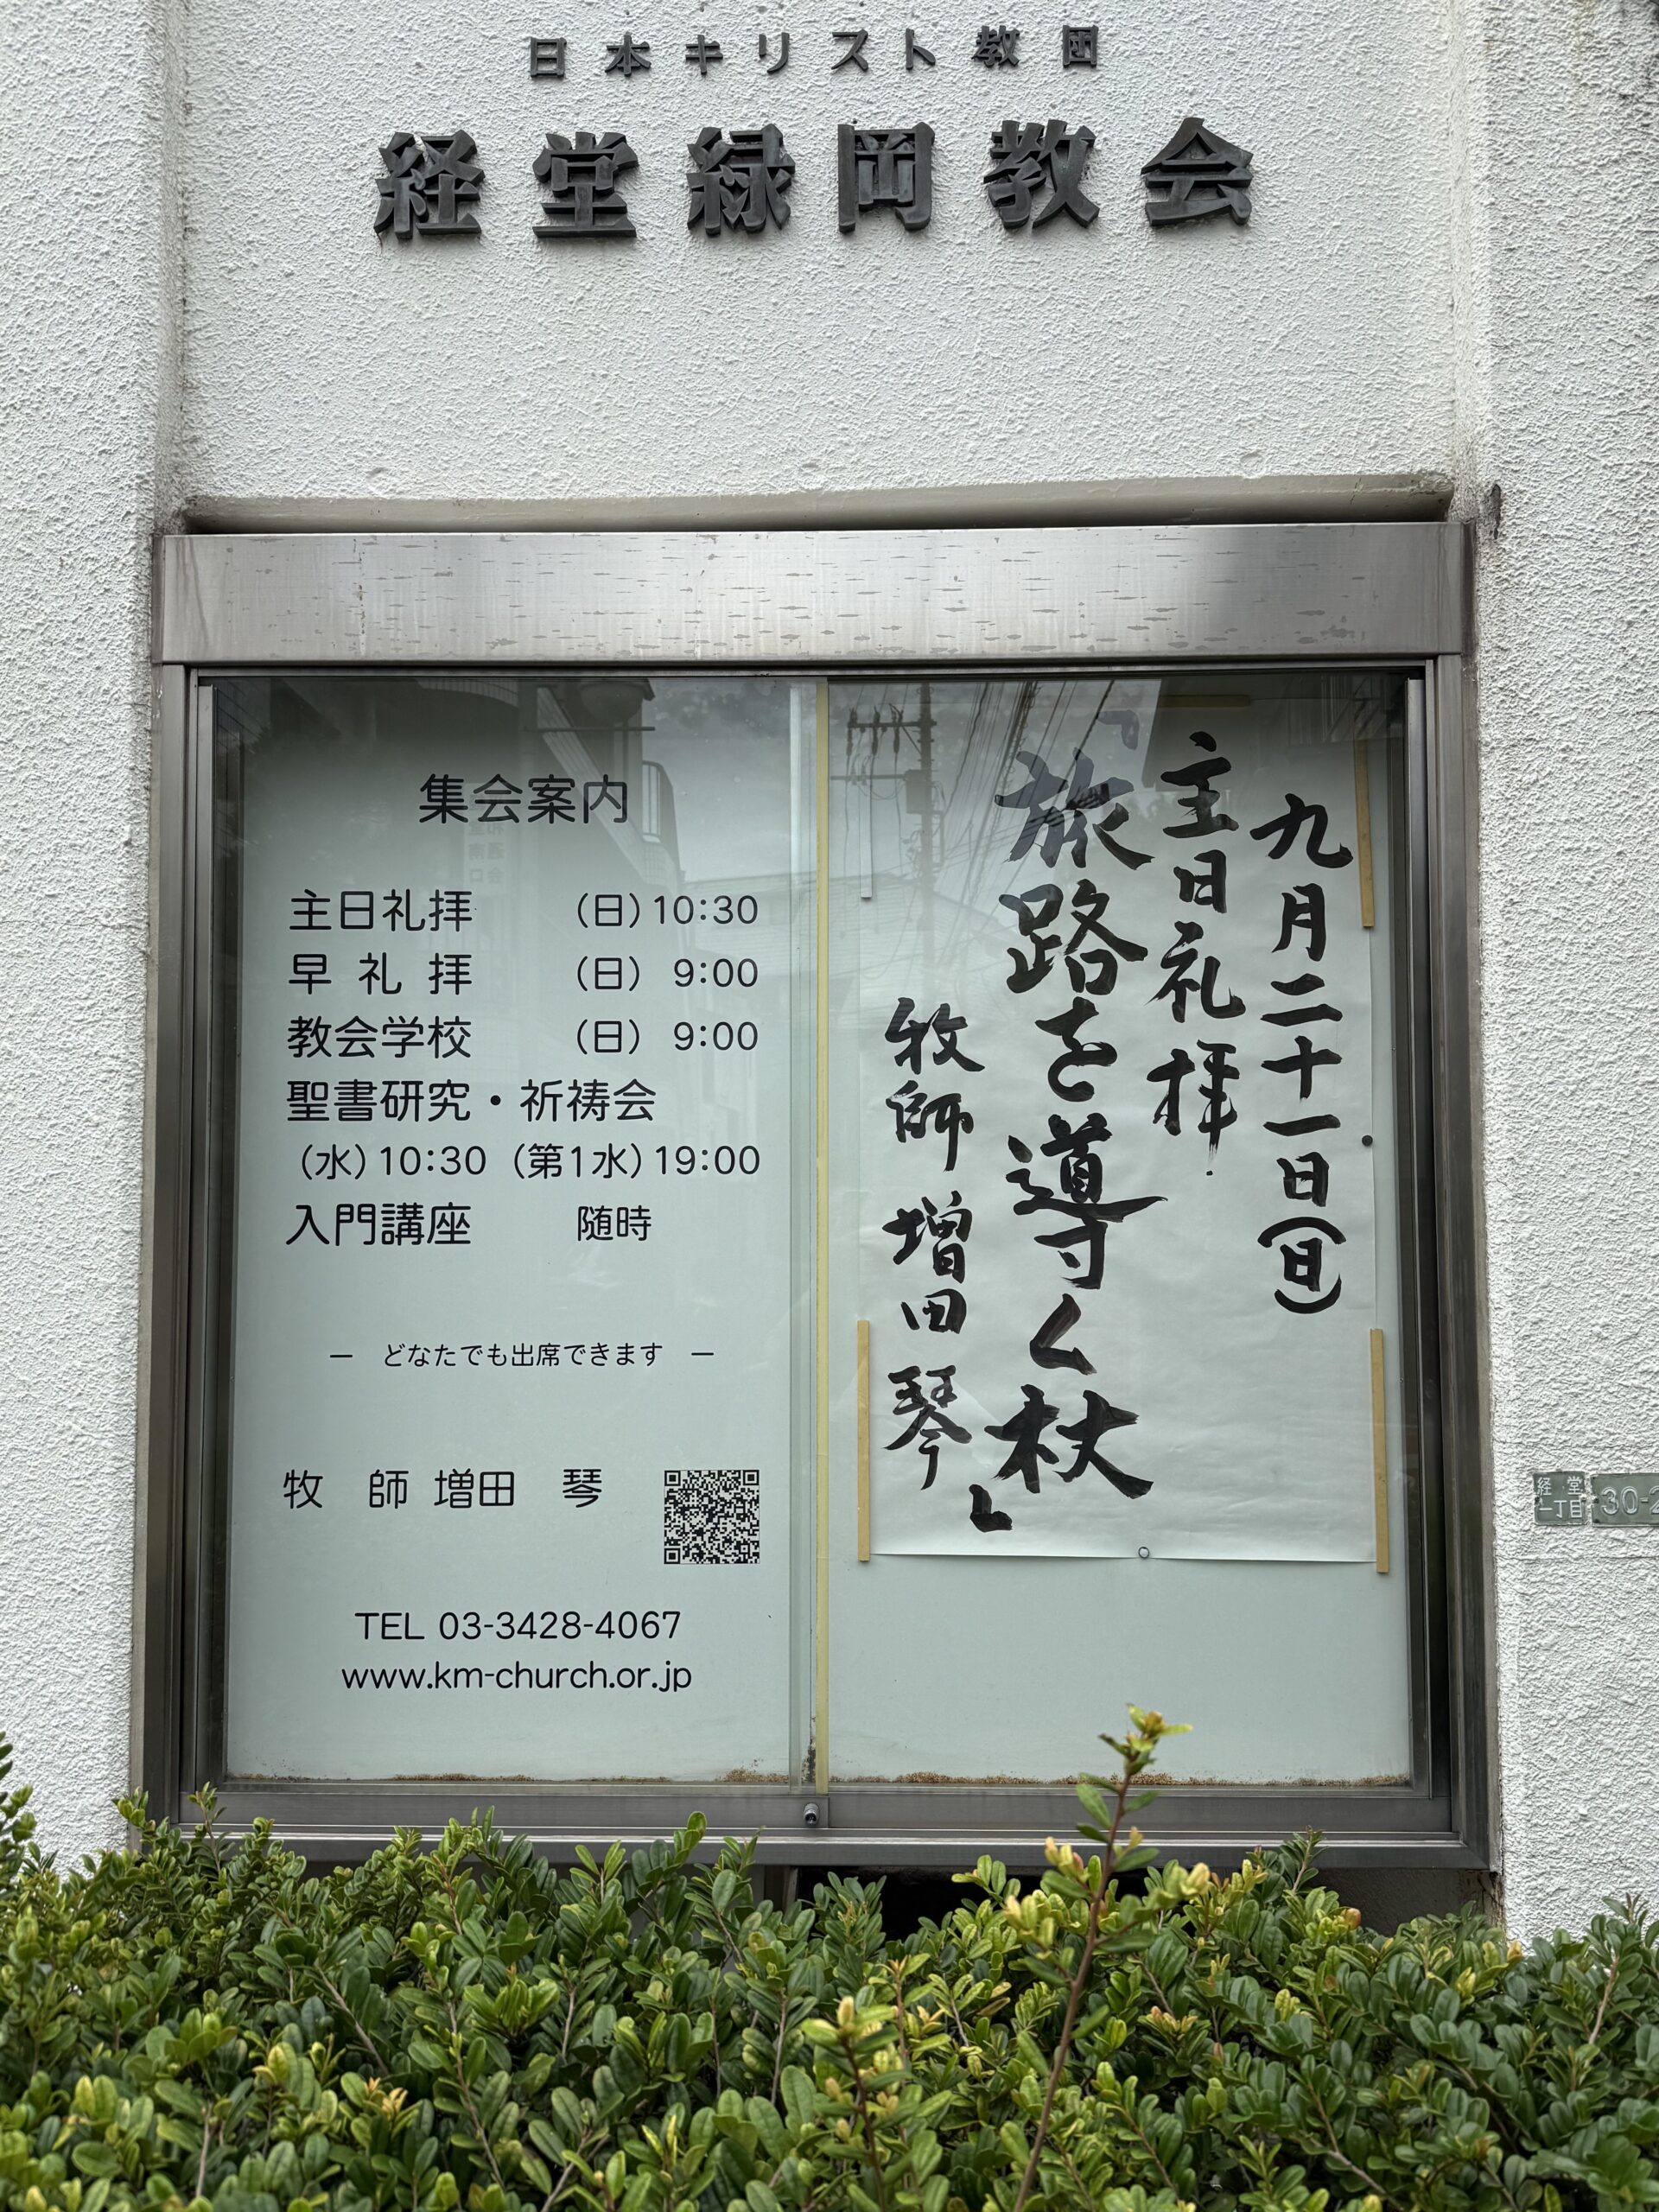 日本キリスト教団
経堂緑岡教会
集会案内
主日礼拝 (日) 10:30
早礼拝 (日) 9:00
教会学校 (日) 9:00
聖書研究・祈祷会
(水) 10:30 (第1水) 19:00
入門講座 随時
― どなたでも出席できます ―
牧 師 増田 琴
TEL 03-3428-4067
www.km-church.or.jp
九月二十一日(日)
主日礼拝
「旅路を導く杖」
牧師 増田 琴
経堂
一丁目
30-2